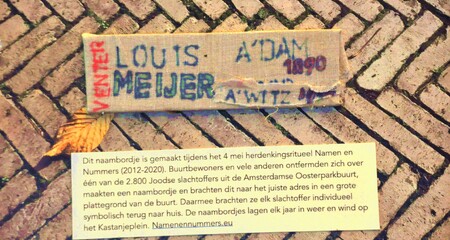 VENTER
LOUIS· A'DAM
1890
MEIJER
A'WITZ
Dit naambordje is gemaakt tijdens het 4 mei herdenkingsritueel Namen en
Nummers (2012-2020). Buurtbewoners en vele anderen ontfermden zich over
één van de 2.800 Joodse slachtoffers uit de Amsterdamse Oosterparkbuurt,
maakten een naambordje en brachten dit naar het juiste adres in een grote
plattegrond van de buurt. Daarmee brachten ze elk slachtoffer individueel
symbolisch terug naar huis. De naambordjes lagen elk jaar in weer en wind op
het Kastanjeplein. Namenennummers.eu